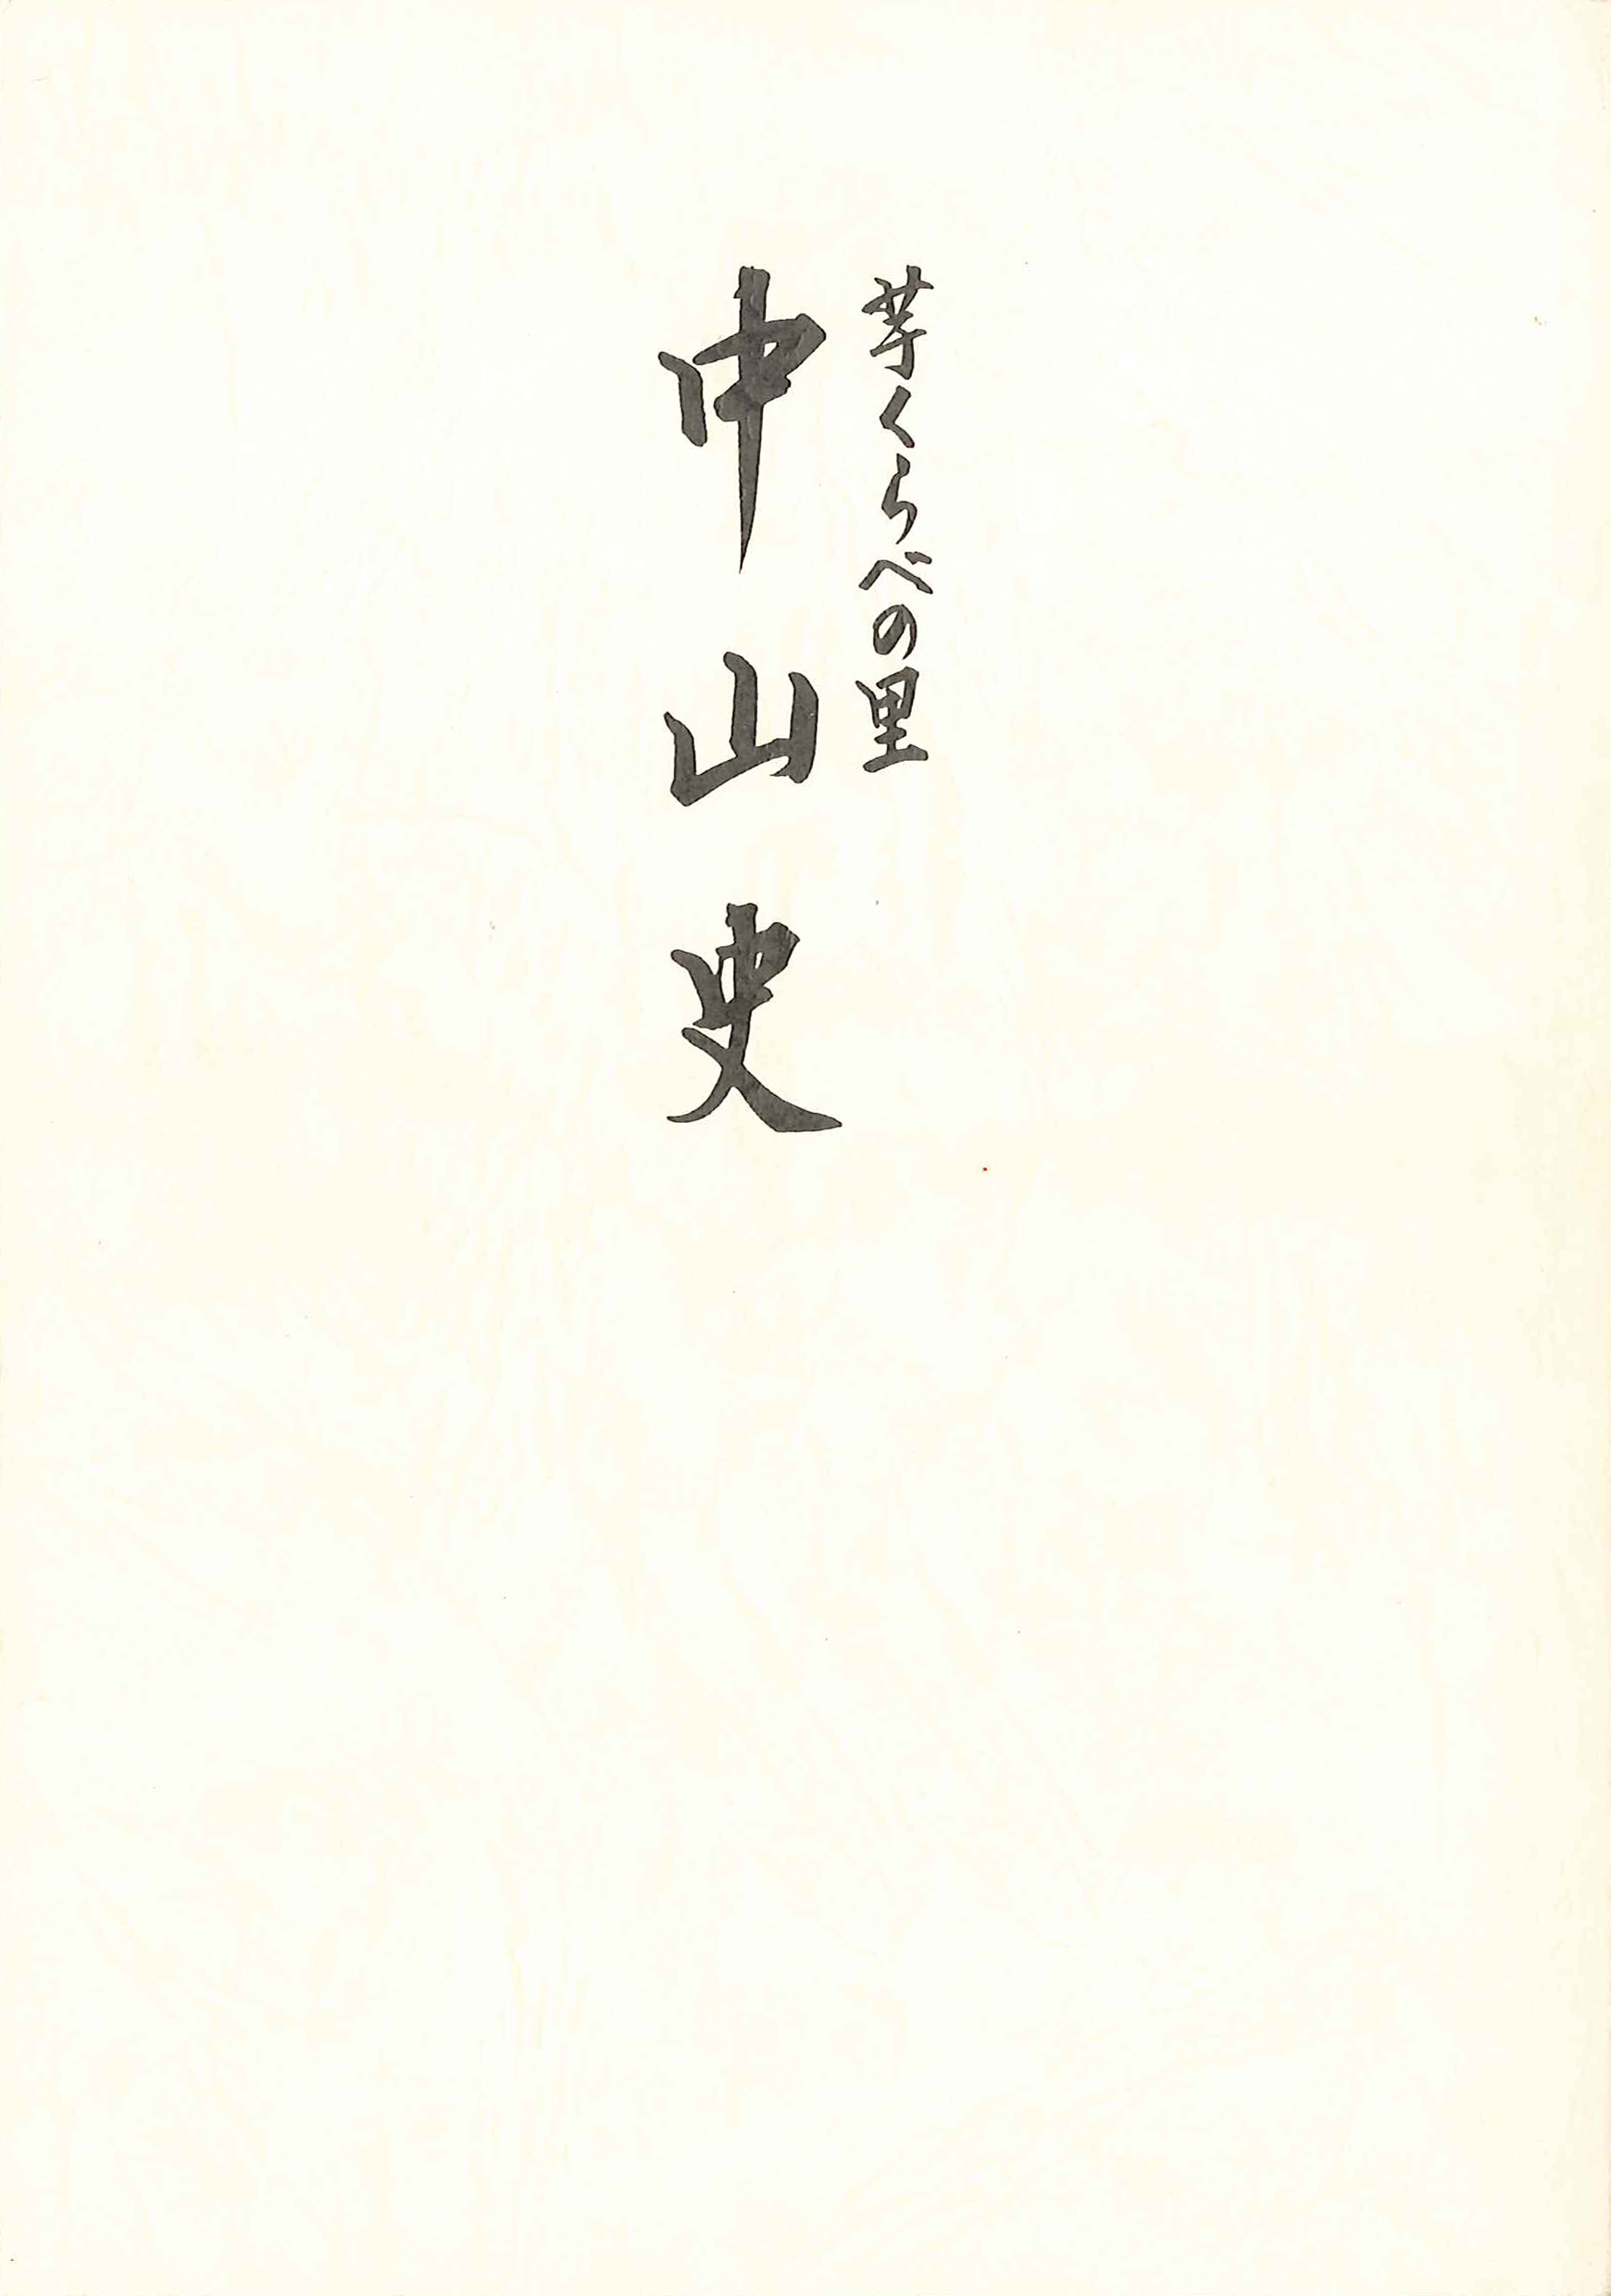 芋くらべの里
中山史